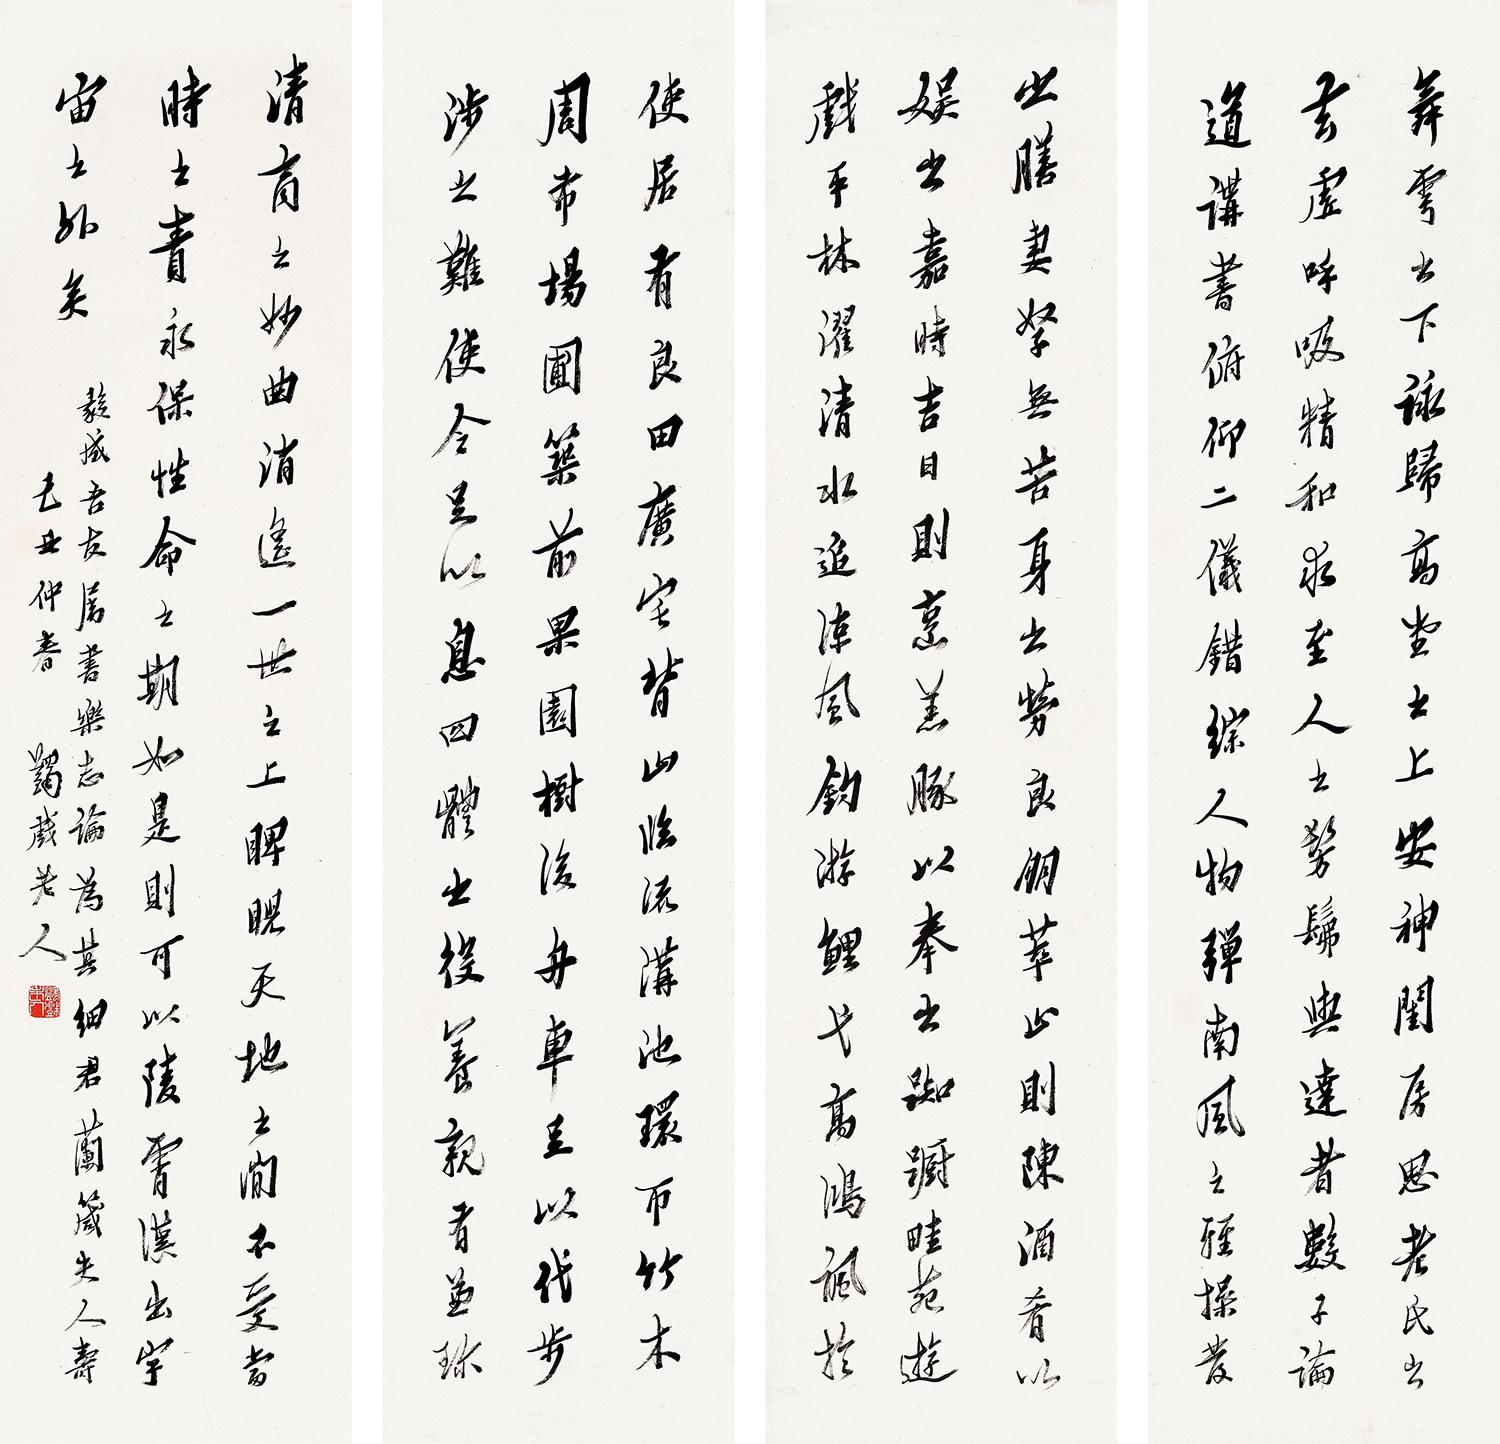 使居有良田廣宅背山臨流溝池環帀竹木
周布場圃築前果園樹後舟車足以代步
涉之難使令足以息四體之役養親有兼珍
之膳妻孥無苦身之勞良朋萃止則陳酒肴以
娛之嘉時吉日則烹羔豚以奉之踟躕畦苑遊
戲平林濯清水追涼風釣游鯉弋高鴻諷於
舞雩之下詠歸高堂之上安神閨房思老氏之
玄虛呼吸精和求至人之髣髴與達者數子論
道講書俯仰二儀錯綜人物彈南風之雅操發
清商之妙曲消遙一世之上睥睨天地之間不受當
時之責永保性命之期如是則可以陵霄漢出宇
宙之外矣
毅成吾友属書樂志論為其細君蘭箴夫人壽
己丑仲春 蠲戲老人